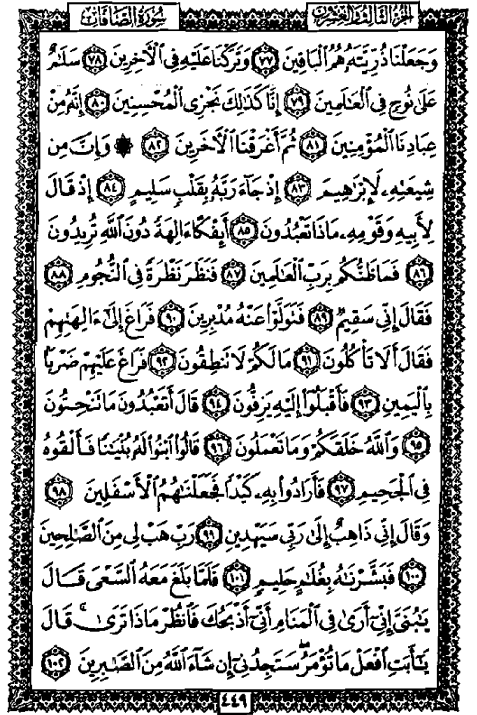 الجزء الثالث والعشرون
سورة الصافات
وَجَعَلْنَا ذُرِّيَّتَهُۥ هُمُ ٱلْبَاقِينَ ٧٧ وَتَرَكْنَا عَلَيْهِ فِى ٱلْآخِرِينَ ٧٨ سَلَٰمٌ
عَلَىٰ نُوحٍ فِى ٱلْعَٰلَمِينَ ٧٩ إِنَّا كَذَٰلِكَ نَجْزِى ٱلْمُحْسِنِينَ ٨٠ إِنَّهُۥ مِنْ
عِبَادِنَا ٱلْمُؤْمِنِينَ ٨١ ثُمَّ أَغْرَقْنَا ٱلْآخَرِينَ ٨٢ ۞ وَإِنَّ مِن
شِيعَتِهِۦ لَإِبْرَٰهِيمَ ٨٣ إِذْ جَآءَ رَبَّهُۥ بِقَلْبٍ سَلِيمٍ ٨٤ إِذْ قَالَ
لِأَبِيهِ وَقَوْمِهِۦ مَاذَا تَعْبُدُونَ ٨٥ أَئِفْكًا ءَالِهَةً دُونَ ٱللَّهِ تُرِيدُونَ
٨٦ فَمَا ظَنُّكُم بِرَبِّ ٱلْعَٰلَمِينَ ٨٧ فَنَظَرَ نَظْرَةً فِى ٱلنُّجُومِ ٨٨
فَقَالَ إِنِّى سَقِيمٌ ٨٩ فَتَوَلَّوْا۟ عَنْهُ مُدْبِرِينَ ٩٠ فَرَاغَ إِلَىٰٓ ءَالِهَتِهِمْ
فَقَالَ أَلَا تَأْكُلُونَ ٩١ مَا لَكُمْ لَا تَنطِقُونَ ٩٢ فَرَاغَ عَلَيْهِمْ ضَرْبًۢا
بِٱلْيَمِينِ ٩٣ فَأَقْبَلُوٓا۟ إِلَيْهِ يَزِفُّونَ ٩٤ قَالَ أَتَعْبُدُونَ مَا تَنْحِتُونَ
٩٥ وَٱللَّهُ خَلَقَكُمْ وَمَا تَعْمَلُونَ ٩٦ قَالُوا۟ ٱبْنُوا۟ لَهُۥ بُنْيَٰنًا فَأَلْقُوهُ
فِى ٱلْجَحِيمِ ٩٧ فَأَرَادُوا۟ بِهِۦ كَيْدًا فَجَعَلْنَٰهُمُ ٱلْأَسْفَلِينَ ٩٨
وَقَالَ إِنِّى ذَاهِبٌ إِلَىٰ رَبِّى سَيَهْدِينِ ٩٩ رَبِّ هَبْ لِى مِنَ ٱلصَّٰلِحِينَ
١٠٠ فَبَشَّرْنَٰهُ بِغُلَٰمٍ حَلِيمٍ ١٠١ فَلَمَّا بَلَغَ مَعَهُ ٱلسَّعْىَ قَالَ
يَٰبُنَىَّ إِنِّىٓ أَرَىٰ فِى ٱلْمَنَامِ أَنِّىٓ أَذْبَحُكَ فَٱنظُرْ مَاذَا تَرَىٰ ۚ قَالَ
يَٰٓأَبَتِ ٱفْعَلْ مَا تُؤْمَرُ ۖ سَتَجِدُنِىٓ إِن شَآءَ ٱللَّهُ مِنَ ٱلصَّٰبِرِينَ ١٠٢
٤٤٩